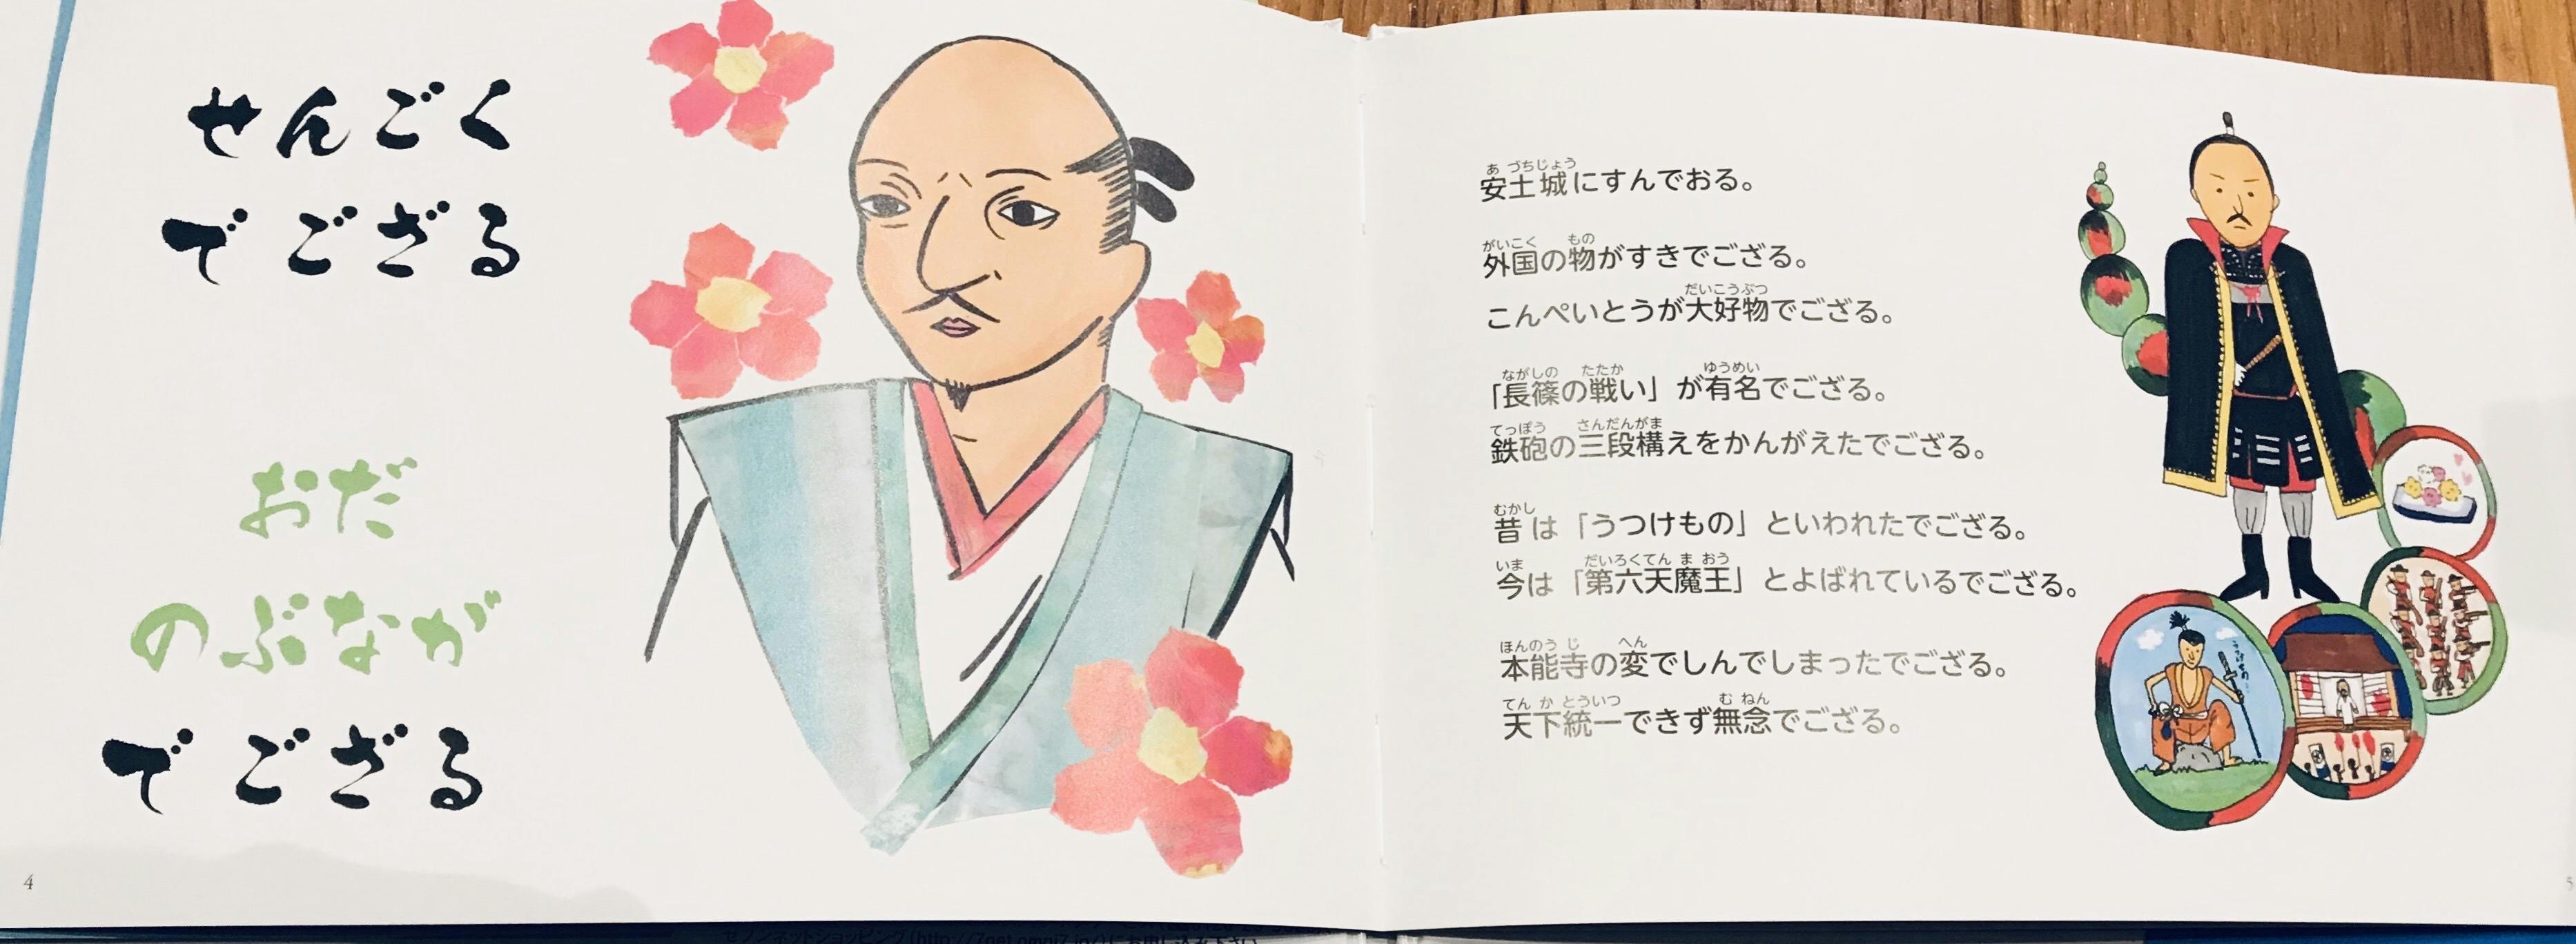 せんごく
でござる
おだ
のぶなが
でござる
4
あづちじょう
安土城にすんでおる。
がいこく もの
外国の物がすきでござる。
だいこうぶつ
こんぺいとうが大好物でござる。
ながしの たたか ゆうめい
「長篠の戦い」が有名でござる。
てっぽう さんだんがま
鉄砲の三段構えをかんがえたでござる。
むかし
昔は「うつけもの」といわれたでござる。
いま だいろくてん ま おう
今は「第六天魔王」とよばれているでござる。
ほんのう じ へん
本能寺の変でしんでしまったでござる。
てん か とういつ む ねん
天下統一できず無念でござる。
うつけもの
5